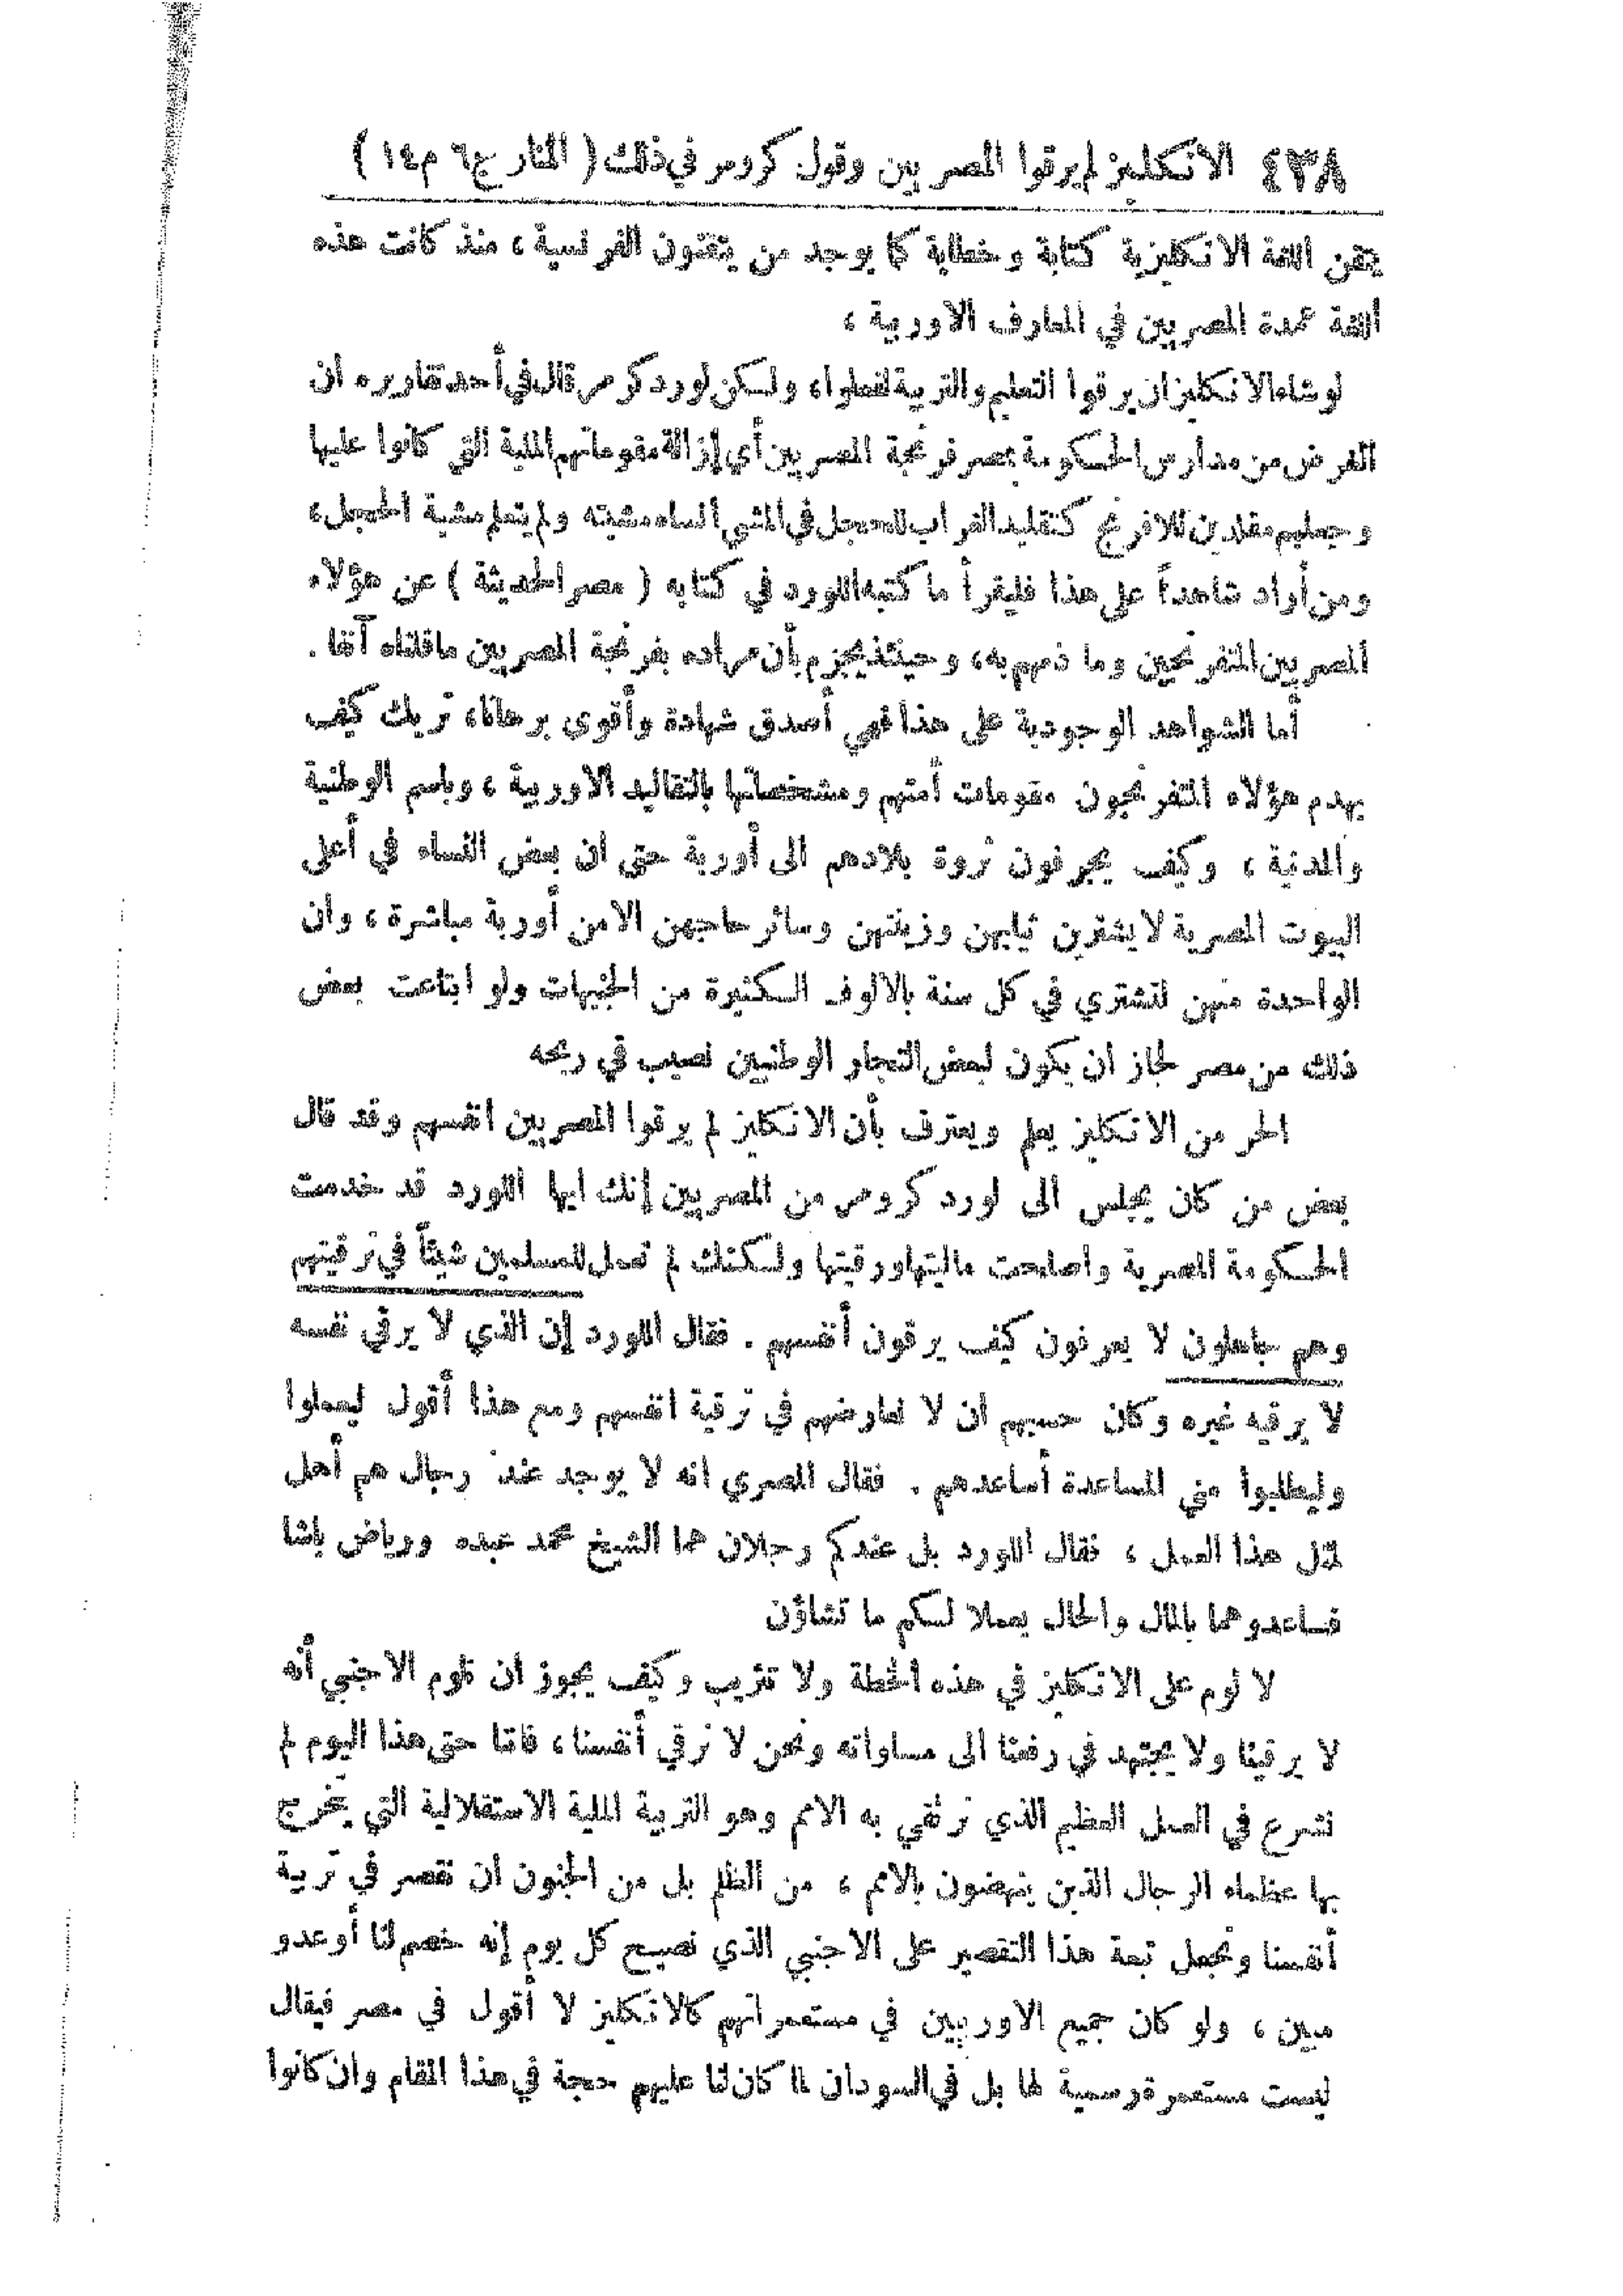 ٤٣٨ الانكليز لم يرقوا المصريين وقول كرومر في ذلك ( المنار ج ٦ م ١٤ )
يتقن اللغة الانكليزية كتابة وخطابة كما يوجد من يتقنون الفرنسية ، منذ كانت هذه
اللغة عمدة المصريين في المعارف الاوربية ،
لو شاء الانكليز ان يرقوا التعليم والتربية لفعلوا ، ولكن لورد كرومر قال في أحد تقاريره ان
الغرض من مدارس الحكومة بمصر فرنجة المصريين أي إزالة مقوماتهم الملية التي كانوا عليها
وجعلهم مقلدين للافرنج كتقليد الغراب للحجل في المشي أنساه مشيته ولم يتعلم مشية الحجل ،
ومن أراد شاهداً على هذا فليقرأ ما كتبه اللورد في كتابه ( مصر الحديثة ) عن هؤلاء
المصريين المتفرنجين وما ذمهم به ، وحينئذ يجزم بأن مراده بفرنجة المصريين ما قلناه آنفا .
أما الشواهد الوجودية على هذا فهي أصدق شهادة وأقوى برهانا ، تريك كيف
يهدم هؤلاء المتفرنجون مقومات أمتهم ومشخصاتها بالتقاليد الاوربية ، وباسم الوطنية
والمدنية ، وكيف يجرفون ثروة بلادهم الى أوربة حتى ان بعض النساء في أعلى
البيوت المصرية لا يشترين ثيابهن وزينتهن وسائر حاجهن الا من أوربة مباشرة ، وان
الواحدة منهن لتشتري في كل سنة بالالوف الكثيرة من الجنيهات ولو ابتاعت بعض
ذلك من مصر لجاز ان يكون لبعض التجار الوطنيين نصيب في ربحه
الحر من الانكليز يعلم ويعترف بأن الانكليز لم يرقوا المصريين انفسهم وقد قال
بعض من كان يجلس الى لورد كرومر من المصريين إنك ايها اللورد قد خدمت
الحكومة المصرية واصلحت ماليتها ورقيتها ولكنك لم تعمل للمسلمين شيئاً في ترقيتهم
وهم جاهلون لا يعرفون كيف يرقون أنفسهم . فقال اللورد إن الذي لا يرقي نفسه
لا يرقيه غيره وكان حسبهم ان لا نعارضهم في ترقية انفسهم ومع هذا أقول ليعملوا
وليطلبوا مني المساعدة أساعدهم . فقال المصري انه لا يوجد عند رجال هم أهل
لمثل هذا العمل ، فقال اللورد بل عندكم رجلان هما الشيخ محمد عبده ورياض باشا
فساعدوهما بالمال والحال يعملا لكم ما تشاؤن
لا لوم على الانكليز في هذه الخطة ولا تثريب وكيف يجوز ان نلوم الاجنبي أنه
لا يرقينا ولا يجتهد في رفعنا الى مساواته ونحن لا نرقي أنفسنا ، فاننا حتى هذا اليوم لم
نشرع في العمل العظيم الذي ترتقي به الامم وهو التربية الملية الاستقلالية التي يتخرج
بها عظماء الرجال الذين ينهضون بالامم ، من الظلم بل من الجنون أن نقصر في تربية
أنفسنا ونجعل تبعة هذا التقصير على الاجنبي الذي نصيح كل يوم إنه خصم لنا أو عدو
مبين ، ولو كان جميع الاوربيين في مستعمراتهم كالانكليز لا أقول في مصر فيقال
ليست مستعمرة رسمية لها بل في السودان لما كان لنا عليهم حجة في هذا المقام وان كانوا